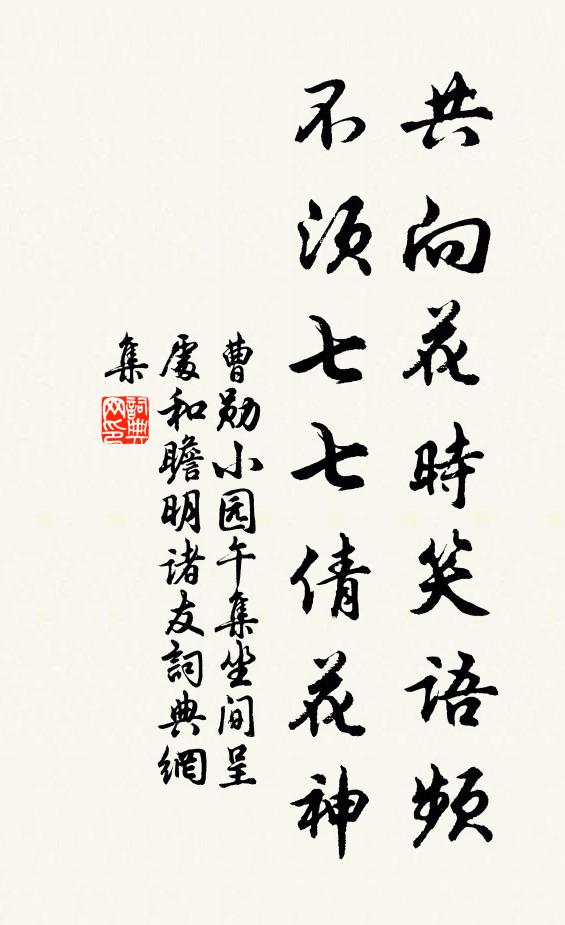 共向花時笑語頻
不須七七倩花神
曹勛小园午集坐间呈
處和瞻明诸友詞典網
集
詞典
网印